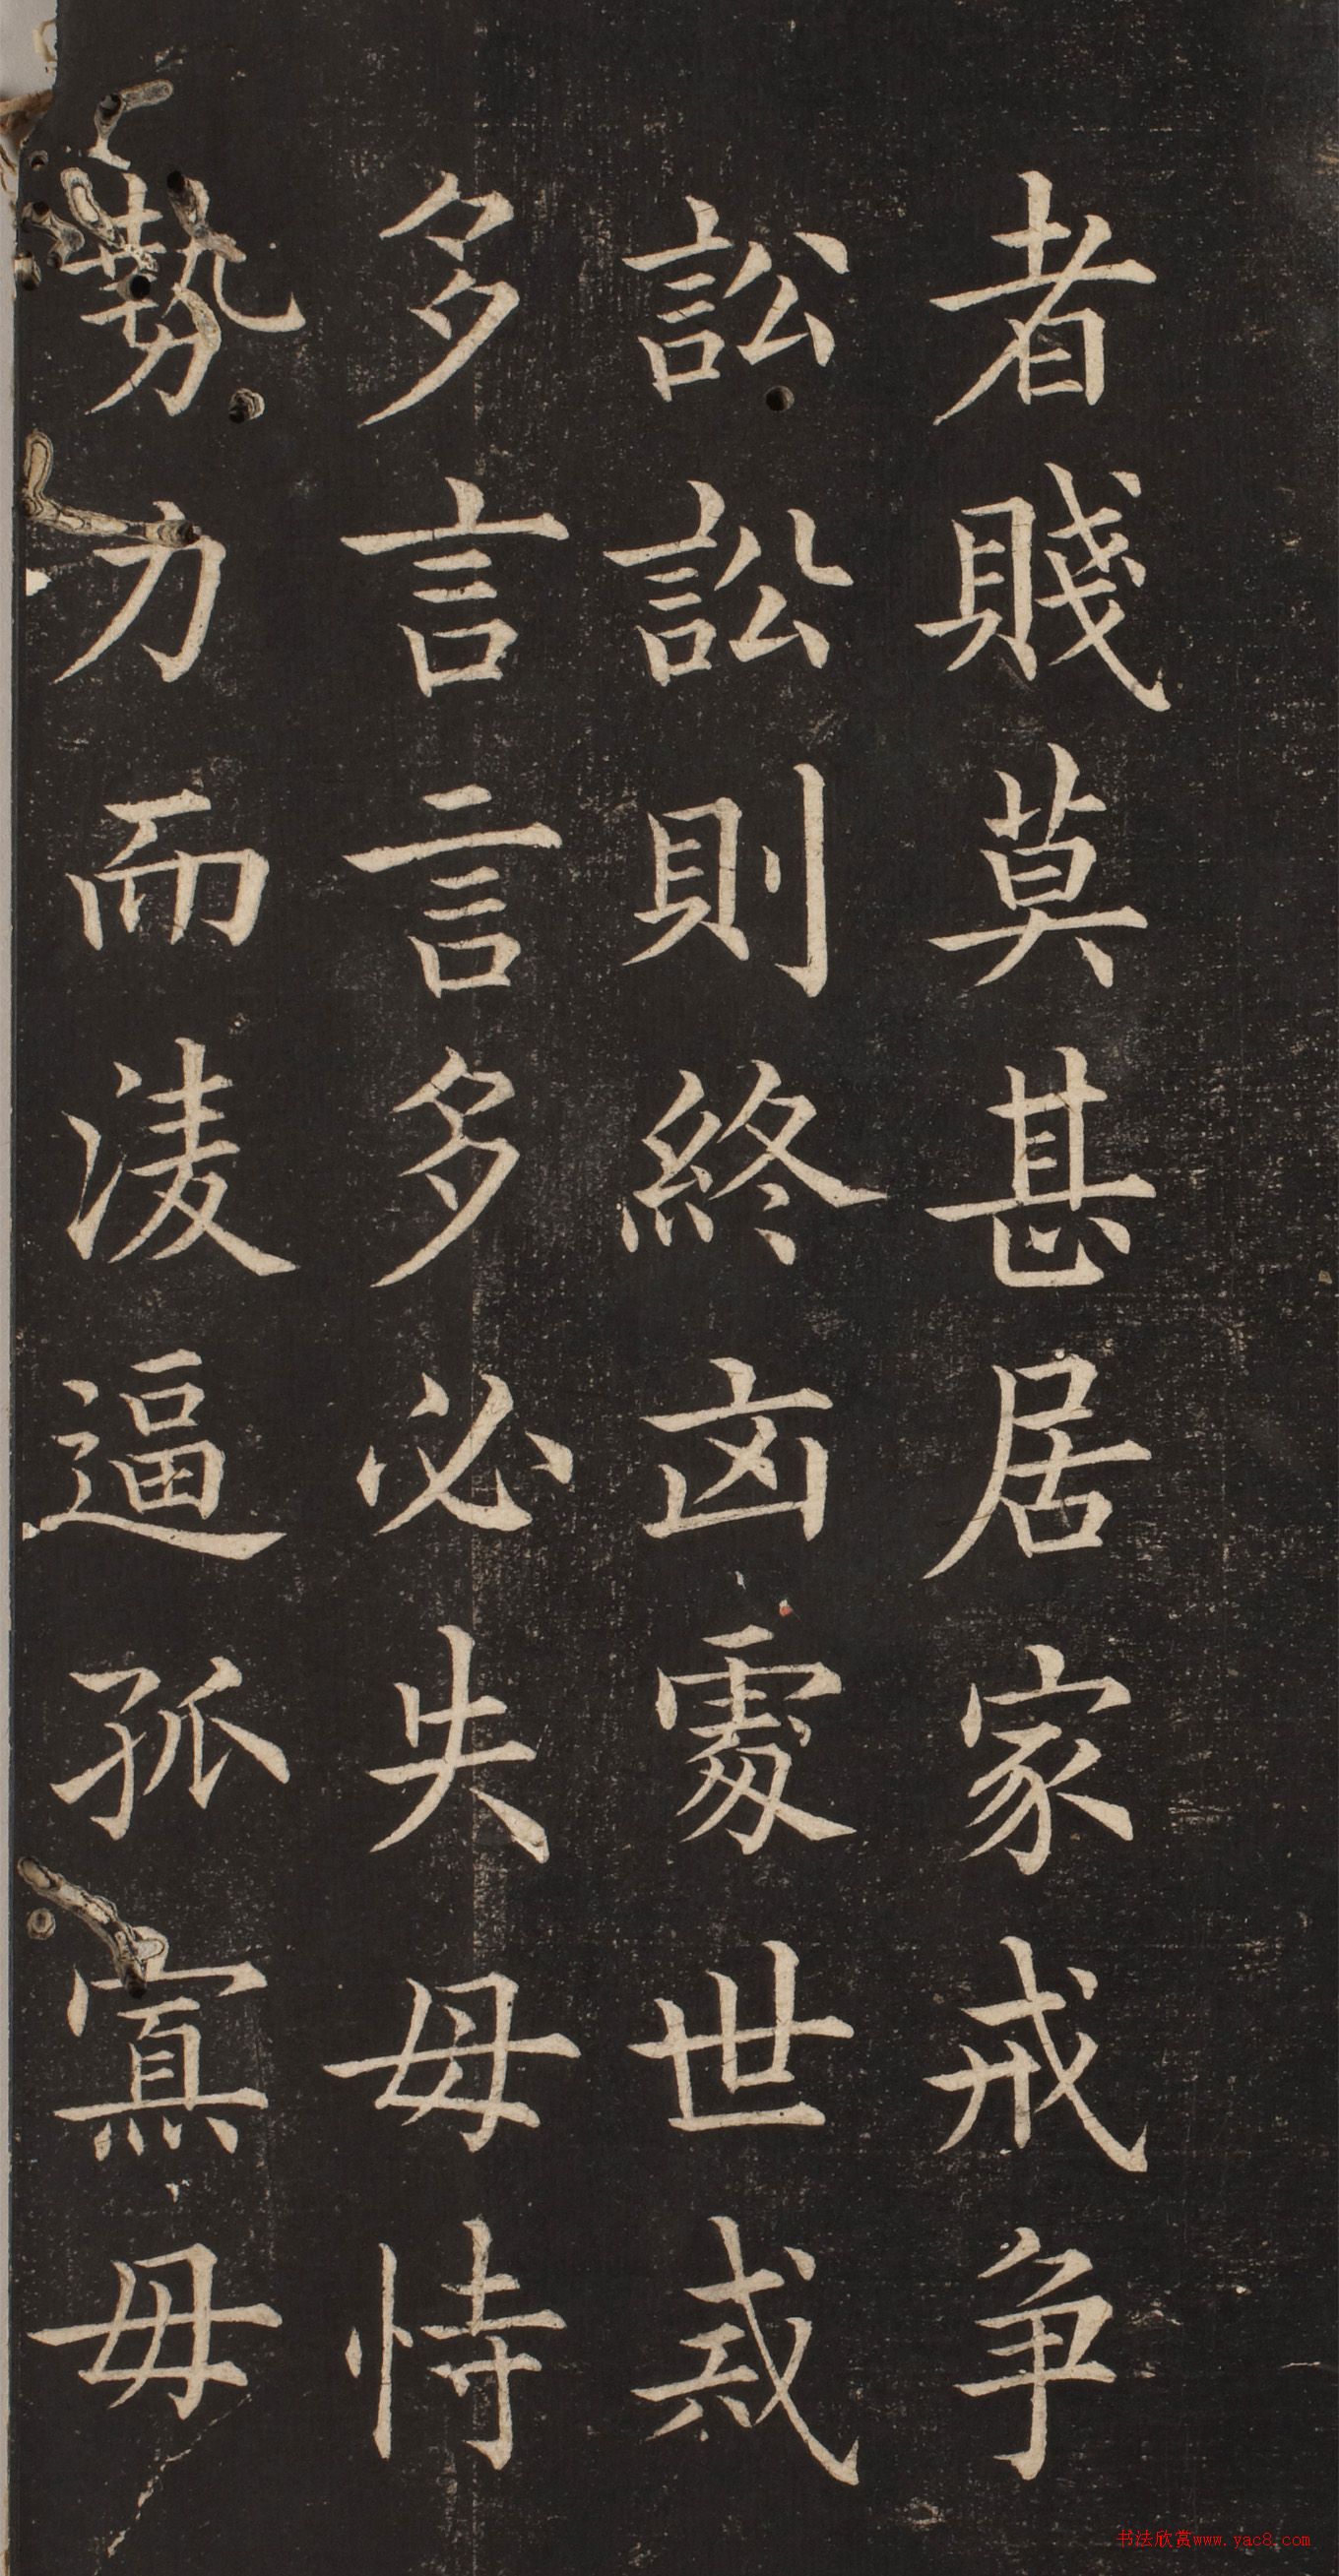 者賤莫甚居家戒争
訟訟則終凶處世戒
多言言多必失毋恃
勢力而淩逼孤寡毋
书法欣赏www.yac8.com